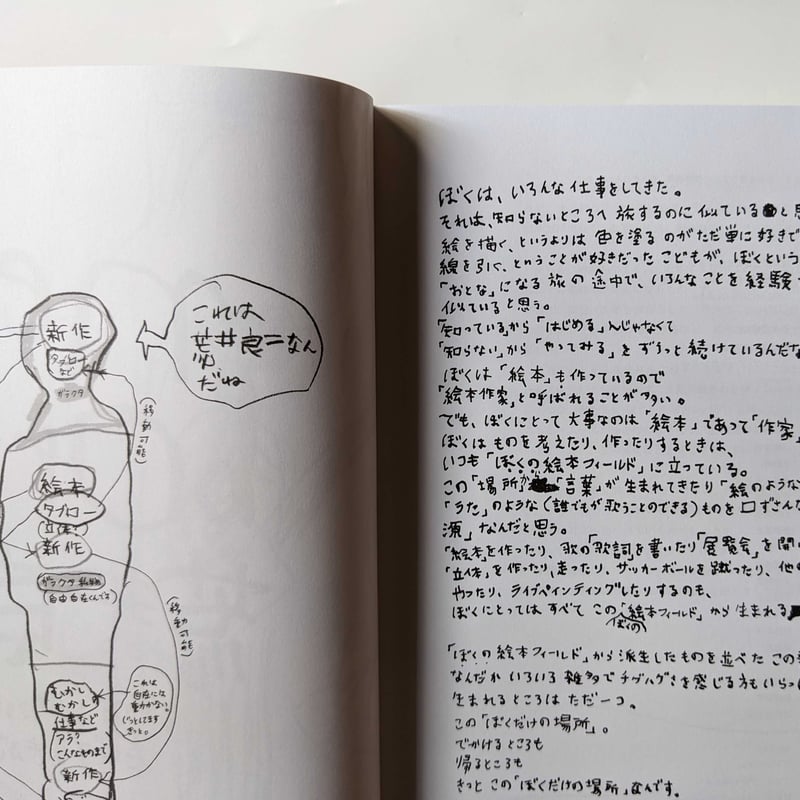 新作
タブロー
など
ガラクタ
(移動可能)
これは
荒井良二なん
だね
絵本
タブロー
立体?
新作
ガラクタ
(自由自在
(移動可能)
むかし
むかしの
仕事など
アラ?
こんなものまで
新作
これは
自在には
動かない。
じっとしてます
きっと。
ぼくは、いろんな仕事をしてきた。
それは、知らないところへ旅するのに似ていると思
絵を描く、というよりは色を塗るのがただ単に好きで
線を引く、ということが好きだったこどもが、ぼくという
「おとな」になる旅の途中で、いろんなことを経験
似ていると思う。
「知っている」から「はじめる」んじゃなくて
「知らない」から「やってみる」をずうっと続けているんだな
ぼくは「絵本」も作っているので
「絵本作家」と呼ばれることが多い。
でも、ぼくにとって大事なのは「絵本」であって「作家」
ぼくはものを考えたり、作ったりするときは、
いつも「ぼくの絵本フィールド」に立っている。
この「場所」が「言葉」が生まれてきたり「絵のような
「うた」のような(誰でもが歌うことのできる)ものを口ずさんだ
源」なんだと思う。
「絵本」を作ったり、歌の「歌詞」を書いたり「展覧会」を開い
「立体」を作ったり、走ったり、サッカーボールを蹴ったり、他の
やったり、ライブペインティングしたりするのも、
ぼくにとってはすべてこの「ぼくの絵本フィールド」から生まれる
「ぼくの絵本フィールド」から派生したものを並べたこの
なんだかいろいろ雑多でチグハグさを感じる方もいらっ
生まれるところはただ一コ。
この「ぼくだけの場所」。
でかけるところも
帰るところも
きっとこの「ぼくだけの場所」なんです。